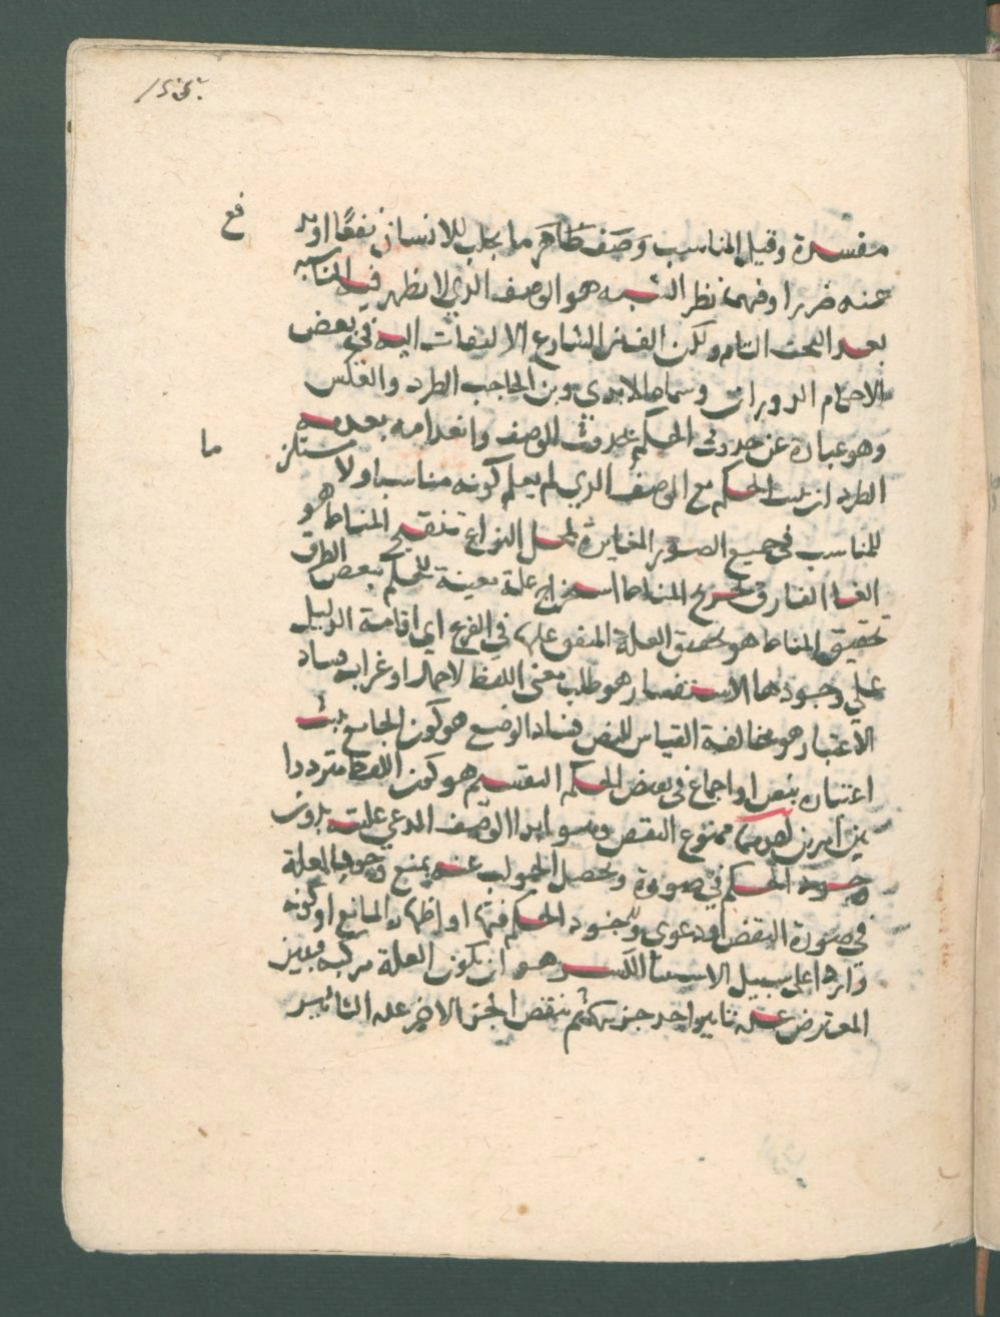 مفسدة وقيل المناسب وصف ظاهر ما يجلب للانسان نفعًا او يد
فع
عنه ضررا وفيهما نظر الشبه هو الوصف الذي لا يظهر فيه المناسبة
بعد البحث التام ولكن الف من الشارع الالتفات اليه في بعض
الاحكام الدوران وسماه الامدي وبن الحاجب الطرد والعكس
وهو عبارة عن حدوث الحكم بحدوث الوصف وانعدامه بعدمه
الطرد ان يثبت الحكم مع الوصف الذي لم يعلم كونه مناسبا ولا مستلز
ما
للمناسب في جميع الصور المغايرة لمحل النزاع تنقيح المناط هو
الغا الفارق تخريج المناط استخراج علة معينة للحكم ببعض الطرق
تحقيق المناط هو تحقيق العلة المتفق عليها في الفرع اي اقامة الدليل
على وجودها الاستفسار هو طلب معنى اللفظ لاجمال او غرابة فساد
الاعتبار هو مخالفة القياس للنص فساد الوضع هو كون الجامع ثبت
اعتباره بنص او اجماع في نقيض الحكم التقسيم هو كون اللفظ مترددا
بين امرين احدهما ممنوع النقض وهو ابدا الوصف المدعي عليته بدون
وجود الحكم في صورة وتحصل الجواب عنه بمنع وجود العلة
في صورة النقض او دعوى وجود الحكم فيها او اظهار المانع او كونه
واردا على سبيل الاستثنا الكسر هو ان تكون العلة مركبة فيبين
المعترض عدم تاثير احد جزييها ثم ينقض الجزء الاخر عدم التاثير